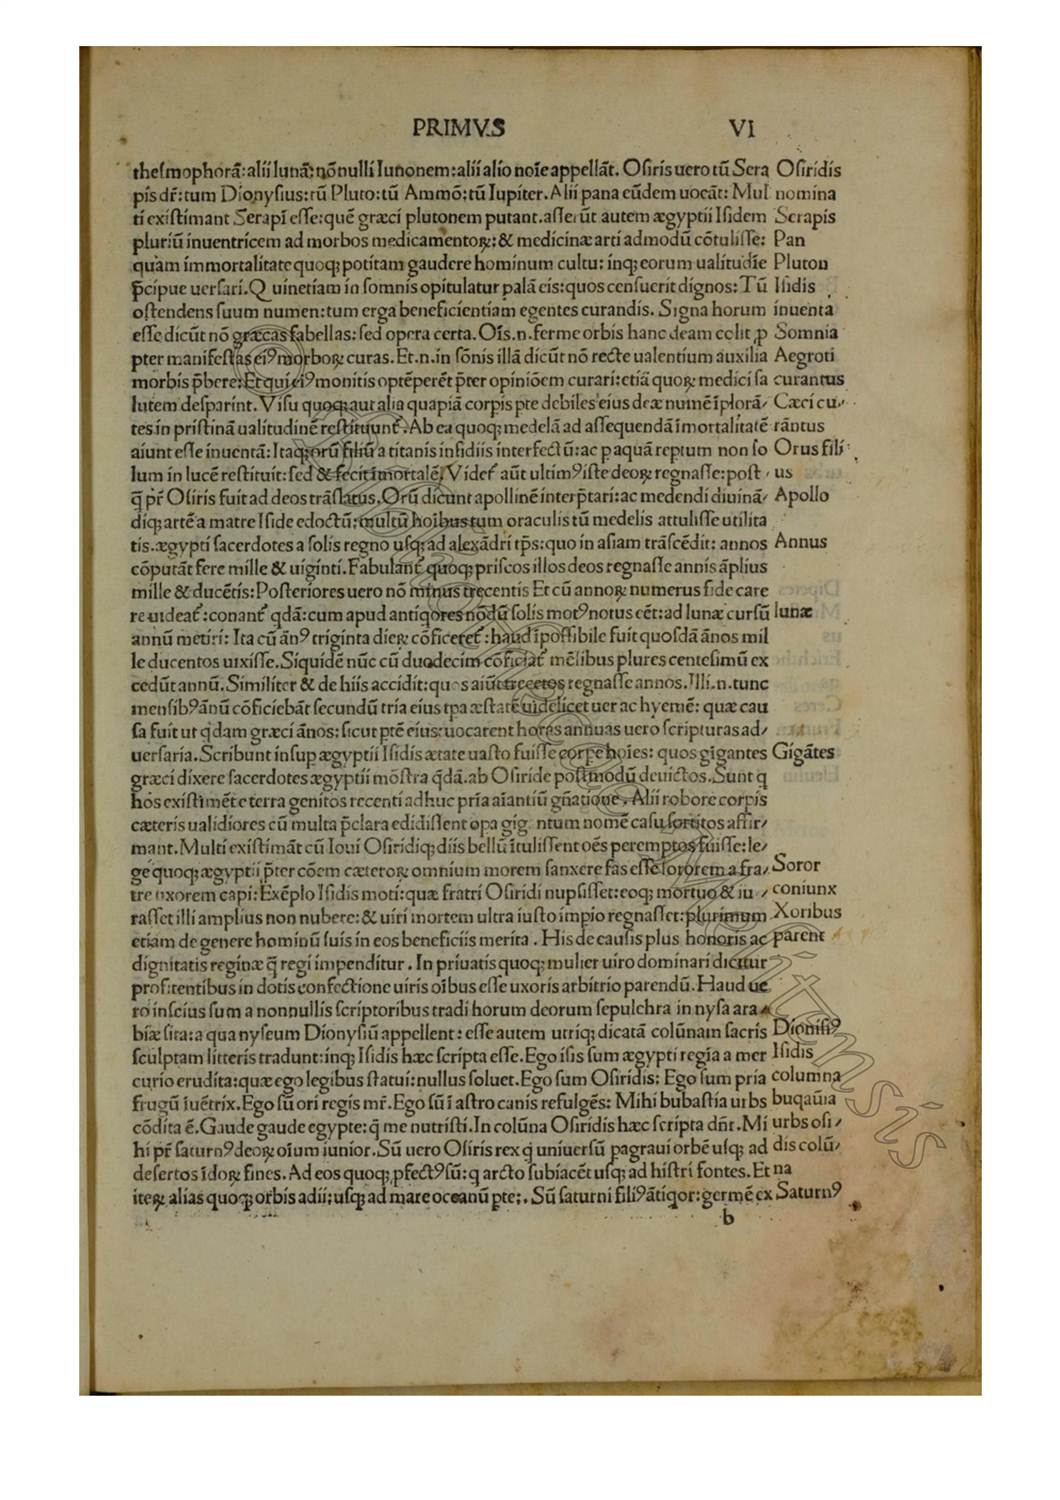 PRIMVS VI
theſmophorā: alii lunā: nōnulli Iunonem: alii alio noīe appellāt. Oſiris uero tū Sera Oſiridis
pis dr̄: tum Dionyſius: tū Pluto: tū Ammō: tū Iupiter. Alii pana eūdem uocāt: Mul nomina
ti exiſtimant Serapī eſſe: quē græci plutonem putant. aſſerūt autem ægyptii Iſidem Serapis
pluriū inuentricem ad morbos medicamentoꝝ: & medicinæ arti admodū cōtuliſſe: Pan
quàm immortalitate quoqꝫ potitam gaudere hominum cultu: inqꝫ eorum ualitudīe Pluton
p̄cipue uerſari. Quinetiam in ſomnis opitulatur palā eis: quos cenſuerit dignos: Tū Iſidis
oſtendens ſuum numen: tum erga beneficientiam egentes curandis. Signa horum inuenta
eſſe dicūt nō græcas fabellas: ſed opera certa. Oīs.n. ferme orbis hanc deam colit ꝓ Somnia
pter manifeſtas eiꝰ morboꝝ curas. Et.n. in ſōnis illā dicūt nō recte ualentium auxilia Aegroti
morbis p̄bere: Et qui eiꝰ monitis optēperēt p̄ter opiniōem curari: etiā quoꝝ medici ſa curantus
lutem deſparint. Viſu quoqꝫ aut alia quapiā corpis pte debiles eius deæ numē īplorā⸗ Cæci cu⸗
tes in priſtinā ualitudinē reſtituunt̄. Ab ea quoqꝫ medelā ad aſſequendā īmortalitatē rāntus
aiunt eſſe inuentā: Itaqꝫ orū filiū a titanis inſidiis interfectū: ac p aquā reptum non ſo Orus fili
lum in lucē reſtituit: ſed & fecit īmortalē. Videt̄ aūt ultimꝰ iſte deoꝝ regnaſſe: poſt us
q̄ pr̄ Oſiris fuit ad deos trāſlatus. Orū dicunt apollinē interp̄tari: ac medendi diuinā⸗ Apollo
diqꝫ artē a matre Iſide edoctū: multū hoībus tum oraculis tū medelis attuliſſe utilita
tis. ægypti ſacerdotes a ſolis regno uſqꝫ ad alexādri tp̄s: quo in aſiam trāſcēdit: annos Annus
cōputāt fere mille & uiginti. Fabulant̄ quoqꝫ priſcos illos deos regnaſſe annis āplius
mille & ducētis: Poſteriores uero nō minus trecentis Et cū annoꝝ numerus fide care
re uideat̄: conant̄ qdā: cum apud antiqores nōdū ſolis motꝰ notus eēt: ad lunæ curſū lunæ
annū metiri: Ita cū ānꝰ triginta dieꝝ cōficeret̄: haud īpoſſibile fuit quoſdā ānos mil
le ducentos uixiſſe. Siquidē nūc cū duodecim cōficiat̄ mēſibus plures centeſimū ex
cedūt annū. Similiter & de hiis accidit: quos aiūt trecētos regnaſſe annos. Illi.n. tunc
menſibꝰ ānū cōficiebāt ſecundū tria eius tpa æſtatē uidelicet uer ac hyemē: quæ cau
ſa fuit ut qdam græci ānos: ſicut ptē eius: uocarent horas annuas uero ſcripturas ad⸗
uerſaria. Scribunt inſup ægyptii Iſidis ætate uaſto fuiſſe corpe hoīes: quos gigantes Gigātes
græci dixere ſacerdotes ægyptii mōſtra qdā. ab Oſiride poſtmodū deuictos. Sunt q
hos exiſtimēt e terra genitos recenti adhuc pria aīantiū gn̄atione. Alii robore corpis
cæteris ualidiores cū multa p̄clara edidiſſent opa gig ntum nomē caſu ſortitos affir⸗
mant. Multi exiſtimāt cū Ioui Oſiridiqꝫ diis bellū ītuliſſent oēs peremptos fuiſſe: le⸗
gē quoqꝫ ægyptii p̄ter cōem cæteroꝝ omnium morem ſanxere fas eſſe ſororem a fra⸗ Soror
tre uxorem capi: Exēplo Iſidis moti: quæ fratri Oſiridi nupſiſſet: eoqꝫ mortuo & iu⸗ coniunx
raſſet illi amplius non nubere: & uiri mortem ultra iuſto impio regnaſſet: plurimum Xoribus
etiam de genere hominū ſuis in eos beneficiis merita. His de cauſis plus honoris ac parent
dignitatis reginæ q̄ regi impenditur. In priuatis quoqꝫ mulier uiro dominari dicitur
profitentibus in dotis confectione uiris oībus eſſe uxoris arbitrio parendū. Haud ue
ro inſcius ſum a nonnullis ſcriptoribus tradi horum deorum ſepulchra in nyſa ara⸗
biæ ſita: a qua nyſeum Dionyſiū appellent: eſſe autem utriqꝫ dicatā colūnam ſacris Dioniſiꝰ
ſculptam litteris tradunt: inqꝫ Iſidis hæc ſcripta eſſe. Ego iſis ſum ægypti regia a mer Iſidis
curio erudita: quæ ego legibus ſtatui: nullus ſoluet. Ego ſum Oſiridis: Ego ſum pria columna
frugū īuētrix. Ego ſū ori regis mr̄. Ego ſū ī aſtro canis refulgēs: Mihi bubaſtia urbs buqaūia
cōdita ē. Gaude gaude egypte: q̄ me nutriſti. In colūna Oſiridis hæc ſcripta dn̄t. Mi urbs oſi⸗
hi pr̄ ſaturnꝰ deoꝝ oīum iunior. Sū uero Oſiris rex q uniuerſū pagraui orbē uſqꝫ ad dis colū⸗
deſertos īdoꝝ fines. Ad eos quoqꝫ ꝓfectꝰ ſū: q arcto ſubiacēt uſqꝫ ad hiſtri fontes. Et na
iteꝝ alias quoqꝫ orbis adii: uſqꝫ ad mare oceanū pte;. Sū ſaturni filiꝰ ātiqor: germē ex Saturnꝰ
b